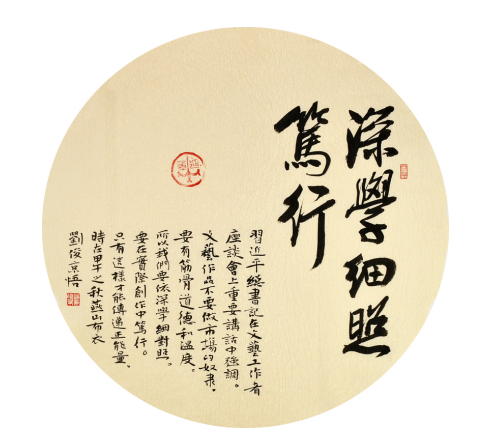 深學細照
篤行
習近平總書記在文藝工作者
座談會上重要講話中强調。
文藝作品不要做市場的奴隸，
要有筋骨道德和溫度。
所以我們要依深學細對照。
要在實際創作中篤行。
只有這樣才能傳遞正能量。
時在甲午之秋燕山布衣
劉俊京悟